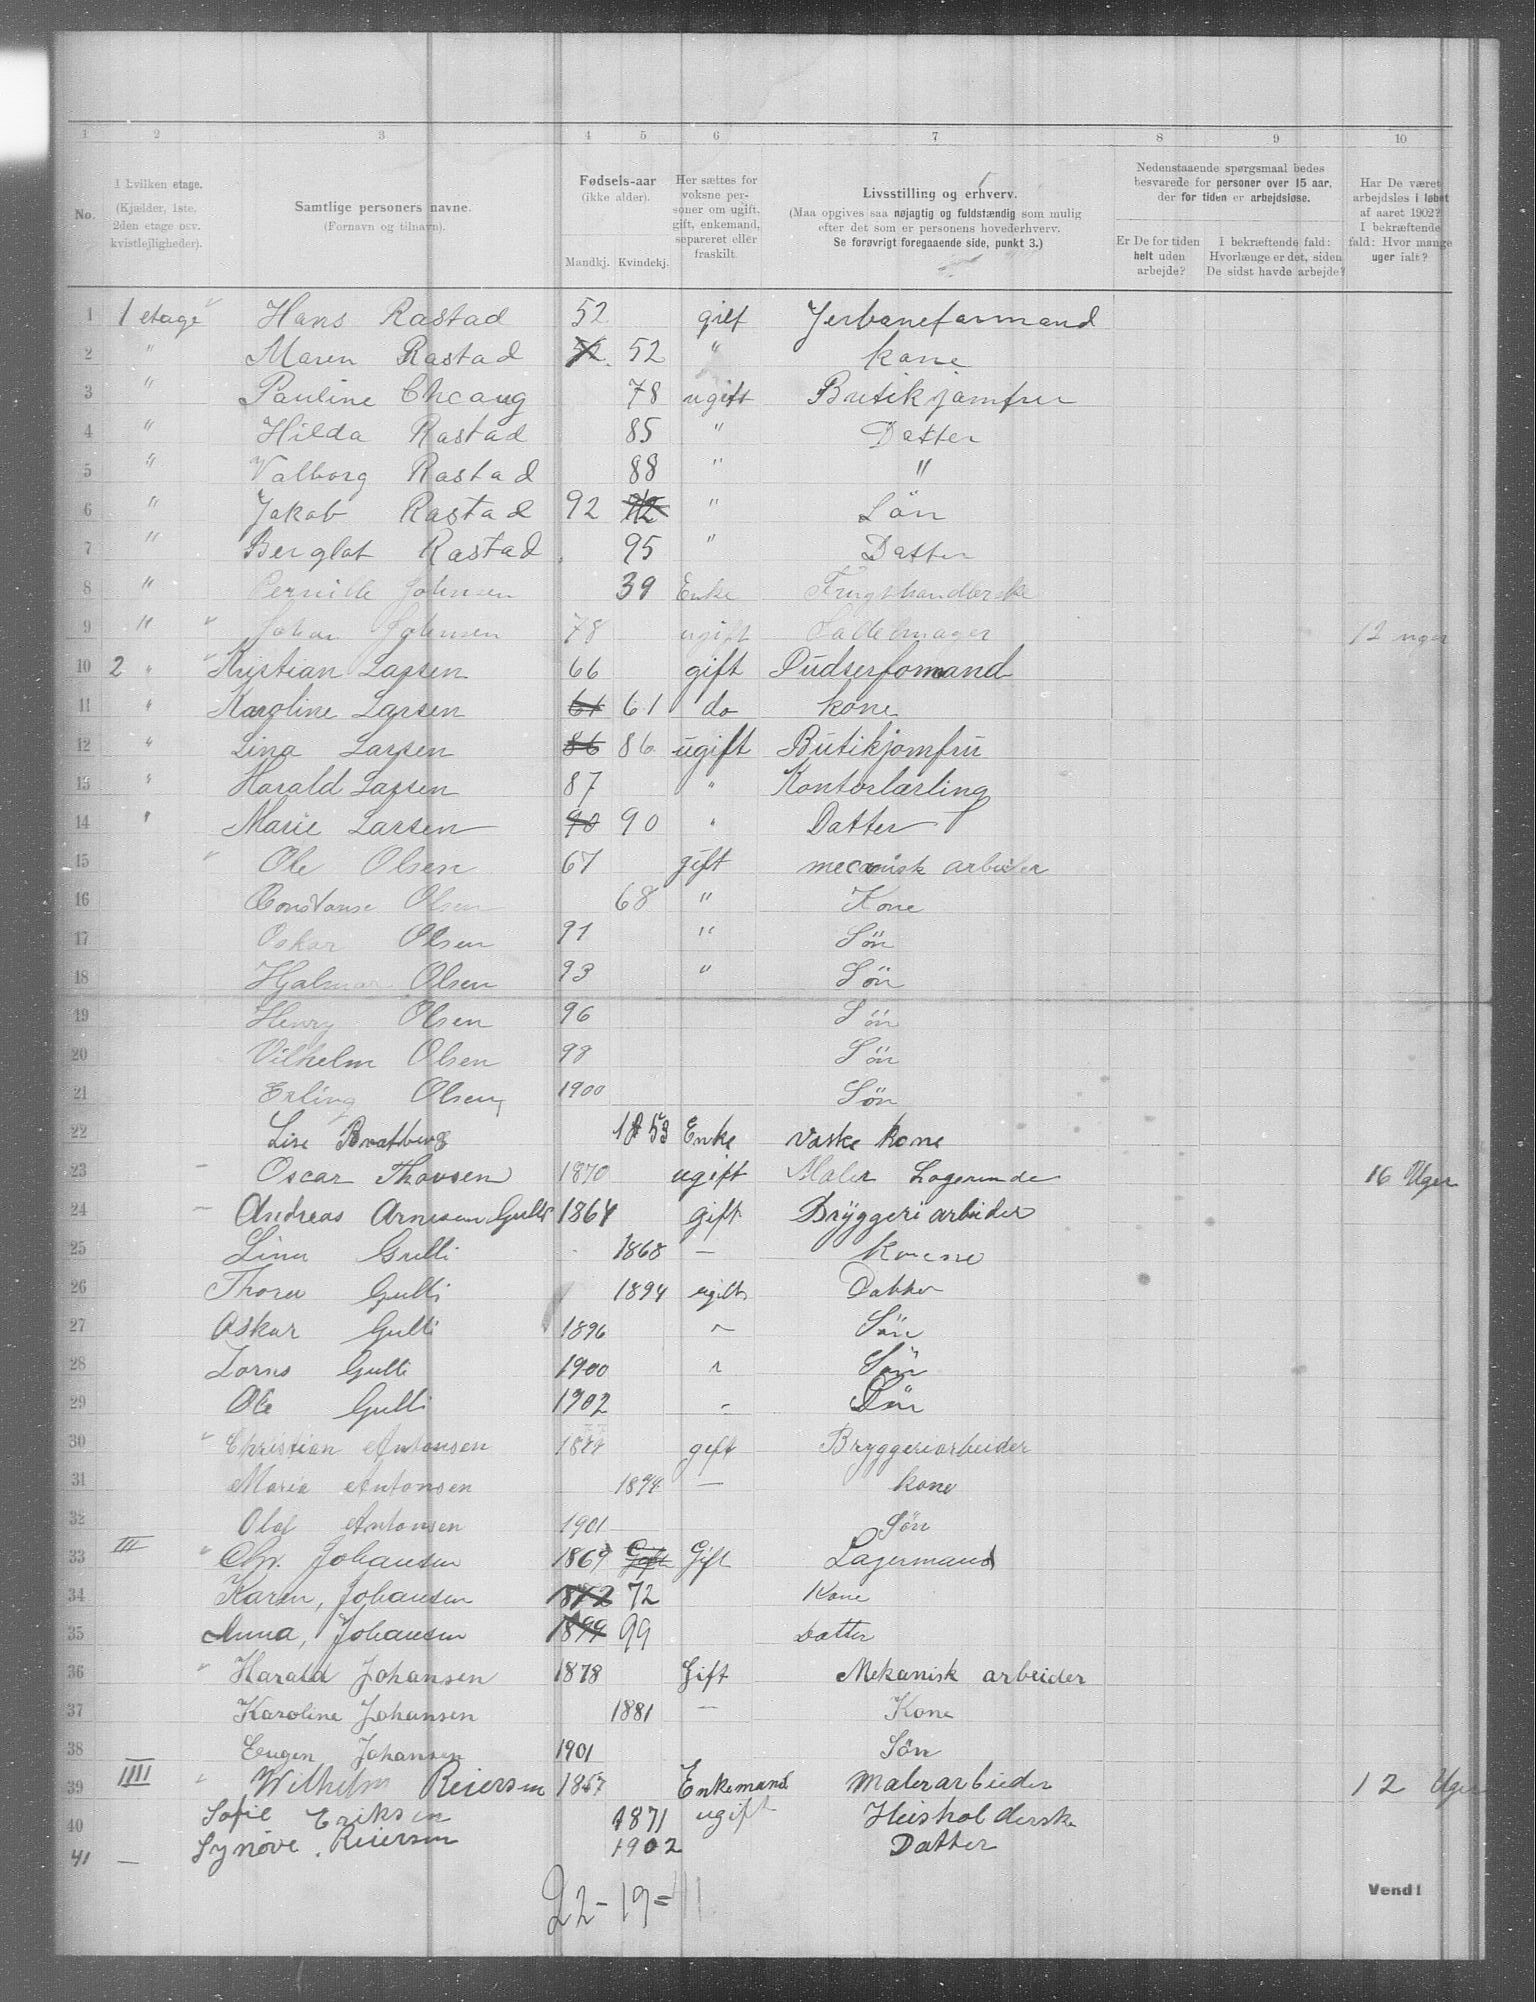 1 2 3 4 5 6 7 8 9 10
No.
I hvilken etage.
(Kjælder, 1ste,
2den etage osv.
kvistleiligheder).
Samtlige personers navne.
(Fornavn og tilnavn).
Fødsels-aar
(ikke alder).
Mandkj. Kvindekj.
Her sættes for
voksne per-
soner om ugift,
gift, enkemand,
separeret eller
fraskilt.
Livsstilling og erhverv.
(Maa opgives saa nøjagtig og fuldstændig som mulig
efter det som er personens hovederhverv.
Se forøvrigt foregaaende side, punkt 3.)
Nedenstaaende spørgsmaal bedes
besvarede for personer over 15 aar,
der for tiden er arbejdsløse.
Er De for tiden
helt uden
arbejde?
I bekræftende fald:
Hvorlænge er det, siden
De sidst havde arbejde?
Har De været
arbejdsløs i løbet
af aaret 1902?
I bekræftende
fald: Hvor mange
uger ialt?
1 1 etage " Hans Rastad 52 gift Jerbaneformand
2 " Maren Rastad 52 52 " Kone
3 " Pauline 78 ugift Butikjomfru
4 " Hilda Rastad 85 " Datter
5 " Valborg Rastad 88 " "
6 " Jakob Rastad 92 92 " Sön
7 " Berglot Rastad 95 " Datter
8 " Pernille Johnsen 39 Enke Frugthandlerske
9 " " Johan Johnsen 78 ugift Sadelmager 12 uger
10 2 " " Kristian Larsen 66 gift Pudserformand
11 " Karoline Larsen 61 61 do kone
12 " Lina Larsen 86 86 ugift Butikjomfru
13 " Harald Larsen 87 " Kontorlærling
14 " Marie Larsen 90 90 " Datter
15 " Ole Olsen 67 gift mecanisk arbeider
16 Constanse Olsen 68 " Kone
17 Oskar Olsen 91 " Sön
18 Hjalmar Olsen 93 " Sön
19 Henry Olsen 96 Sön
20 Vilhelm Olsen 98 Sön
21 Erling Olsen 1900 Sön
22 Lise Bratberg 1853 Enke Vaske Kone
23 - Oscar Thovsen 1870 ugift Maler 16 Uger
24 - Andreas Arnesen Gulli 1864 gift Bryggeri arbeider
25 Lina Gulli 1868 — Koene
26 Thora Gulli 1894 ugift Datter
27 Oskar Gulli 1896 " Sön
28 Gulli 1900 " Sön
29 Ole Gulli 1902 " Sön
30 " Christian Antonsen gift Bryggeriarbeider
31 Maria Antonsen 1874 — kone
32 Olaf Antonsen 1901 Sön
33 III " Chr. Johansen 1869 Gift Gift Lagermand
34 Karen, Johansen 1872 72 Kone
35 Anna, Johansen 1899 99 Datter
36 " Harald Johansen 1878 Gift Mekanisk arbeider
37 Karoline Johansen 1881 — Kone
38 Eugen Johansen 1901 Sön
39 IIII " Wilhelm Reiersen 1857 Enkemand Malerarbeider 12 Uger
40 Sofie Eriksen 1871 ugift Heisholderske
41 — Synöve Reiersen 1902 Datter
22 - 19 =
Vend!